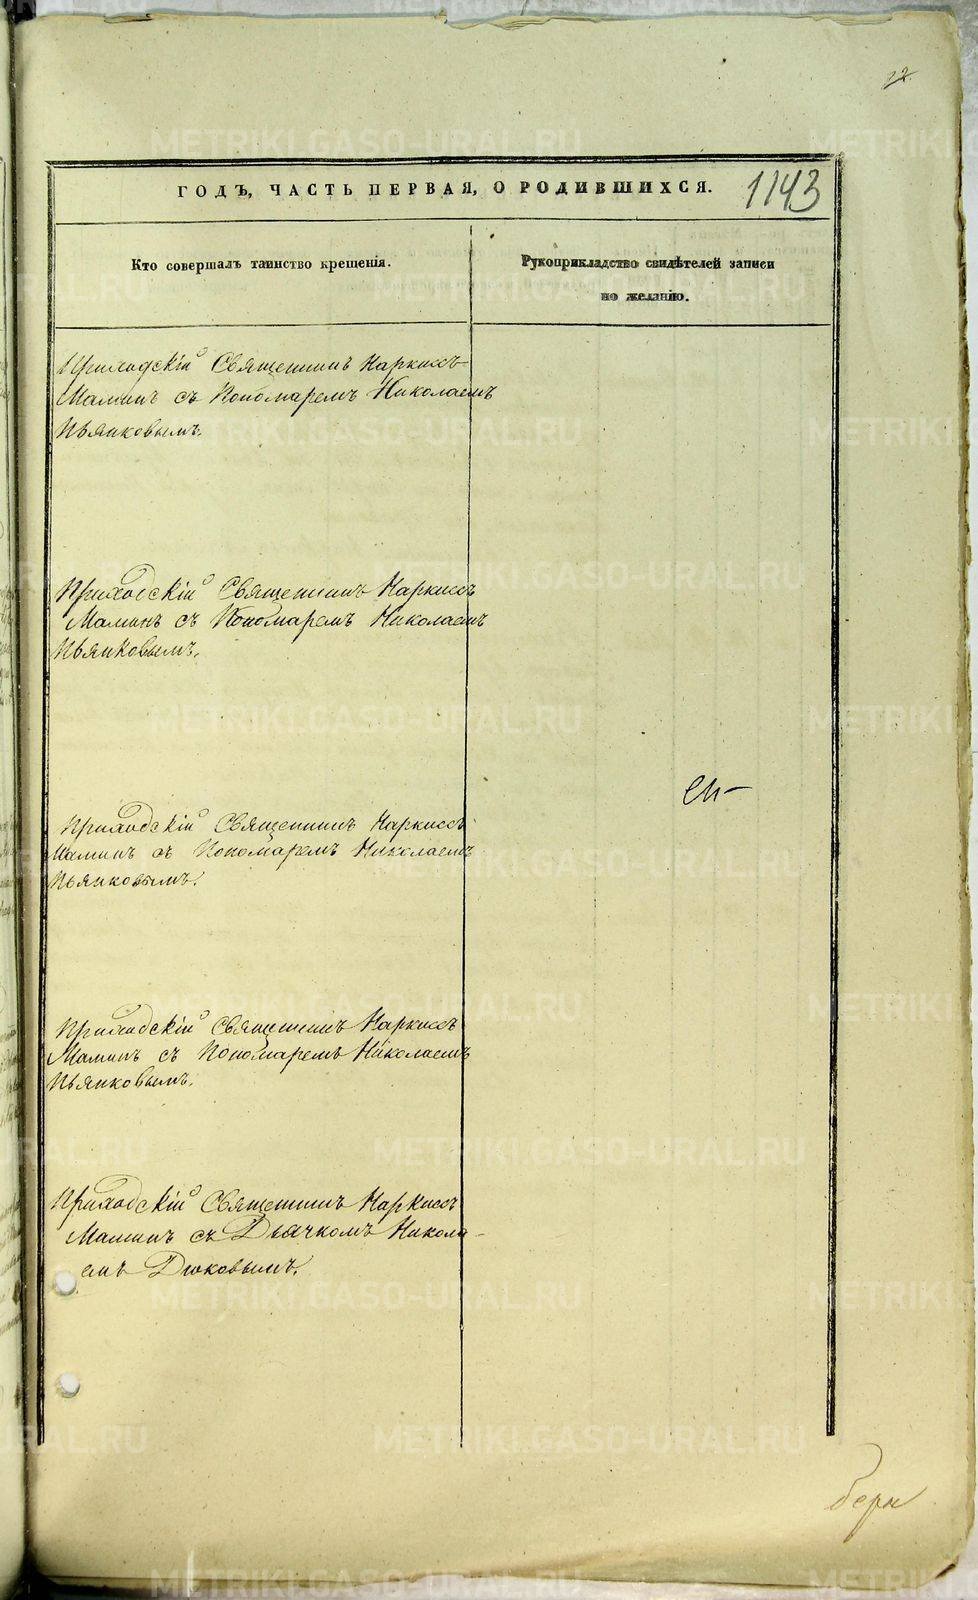 22.
ГОДЪ, ЧАСТЬ ПЕРВАЯ, О РОДИВШИХСЯ. 1143
Кто совершалъ таинство крещенія.
Рукоприкладство свидѣтелей записи
по желанію.
Приходскій Священникъ Наркиссъ
Маминъ съ Пономаремъ Николаемъ
Пьянковымъ.
Приходскій Священникъ Наркиссъ
Маминъ съ Пономаремъ Николаемъ
Пьянковымъ.
Приходскій Священникъ Наркиссъ
Маминъ съ Пономаремъ Николаемъ
Пьянковымъ.
Приходскій Священникъ Наркиссъ
Маминъ съ Пономаремъ Николаемъ
Пьянковымъ.
Приходскій Священникъ Наркиссъ
Маминъ съ Дьячкомъ Никола-
емъ Дюковымъ.
METRIKI.GASO-URAL.RU